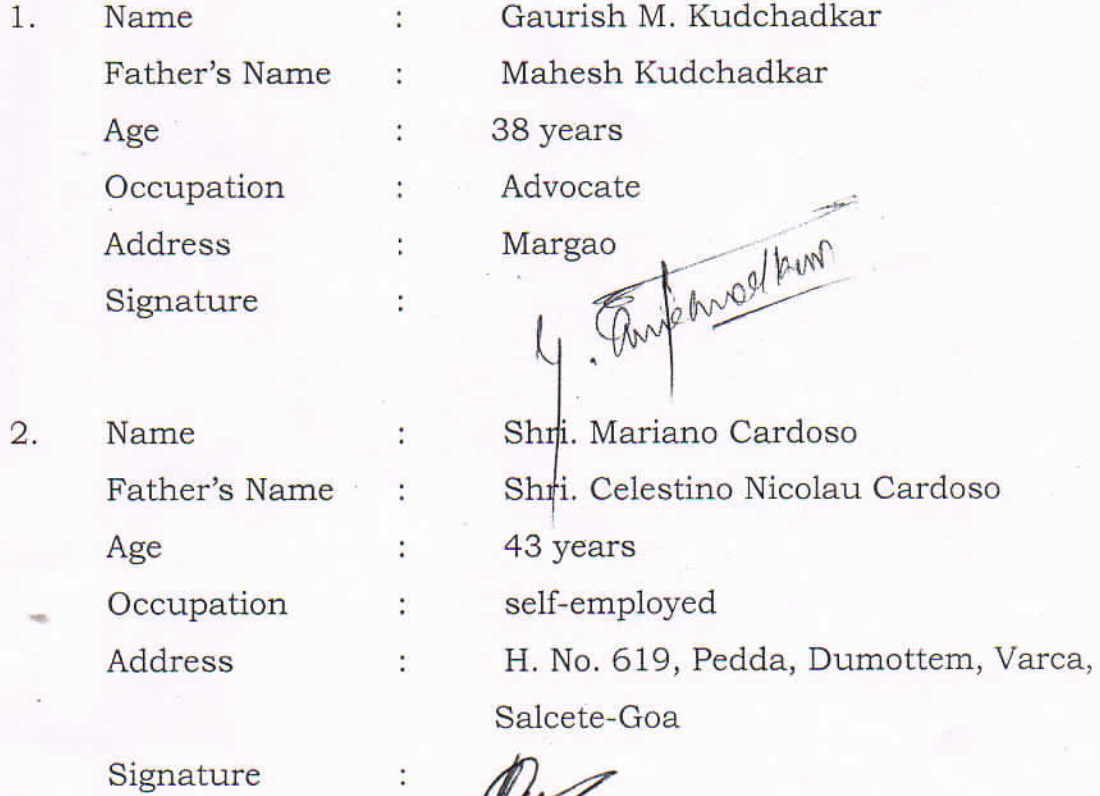 1. Name : Gaurish M. Kudchadkar
Father's Name : Mahesh Kudchadkar
Age : 38 years
Occupation : Advocate
Address : Margao
Signature :
2. Name : Shri. Mariano Cardoso
Father's Name : Shri. Celestino Nicolau Cardoso
Age : 43 years
Occupation : self-employed
Address : H. No. 619, Pedda, Dumottem, Varca,
Salcete-Goa
Signature :